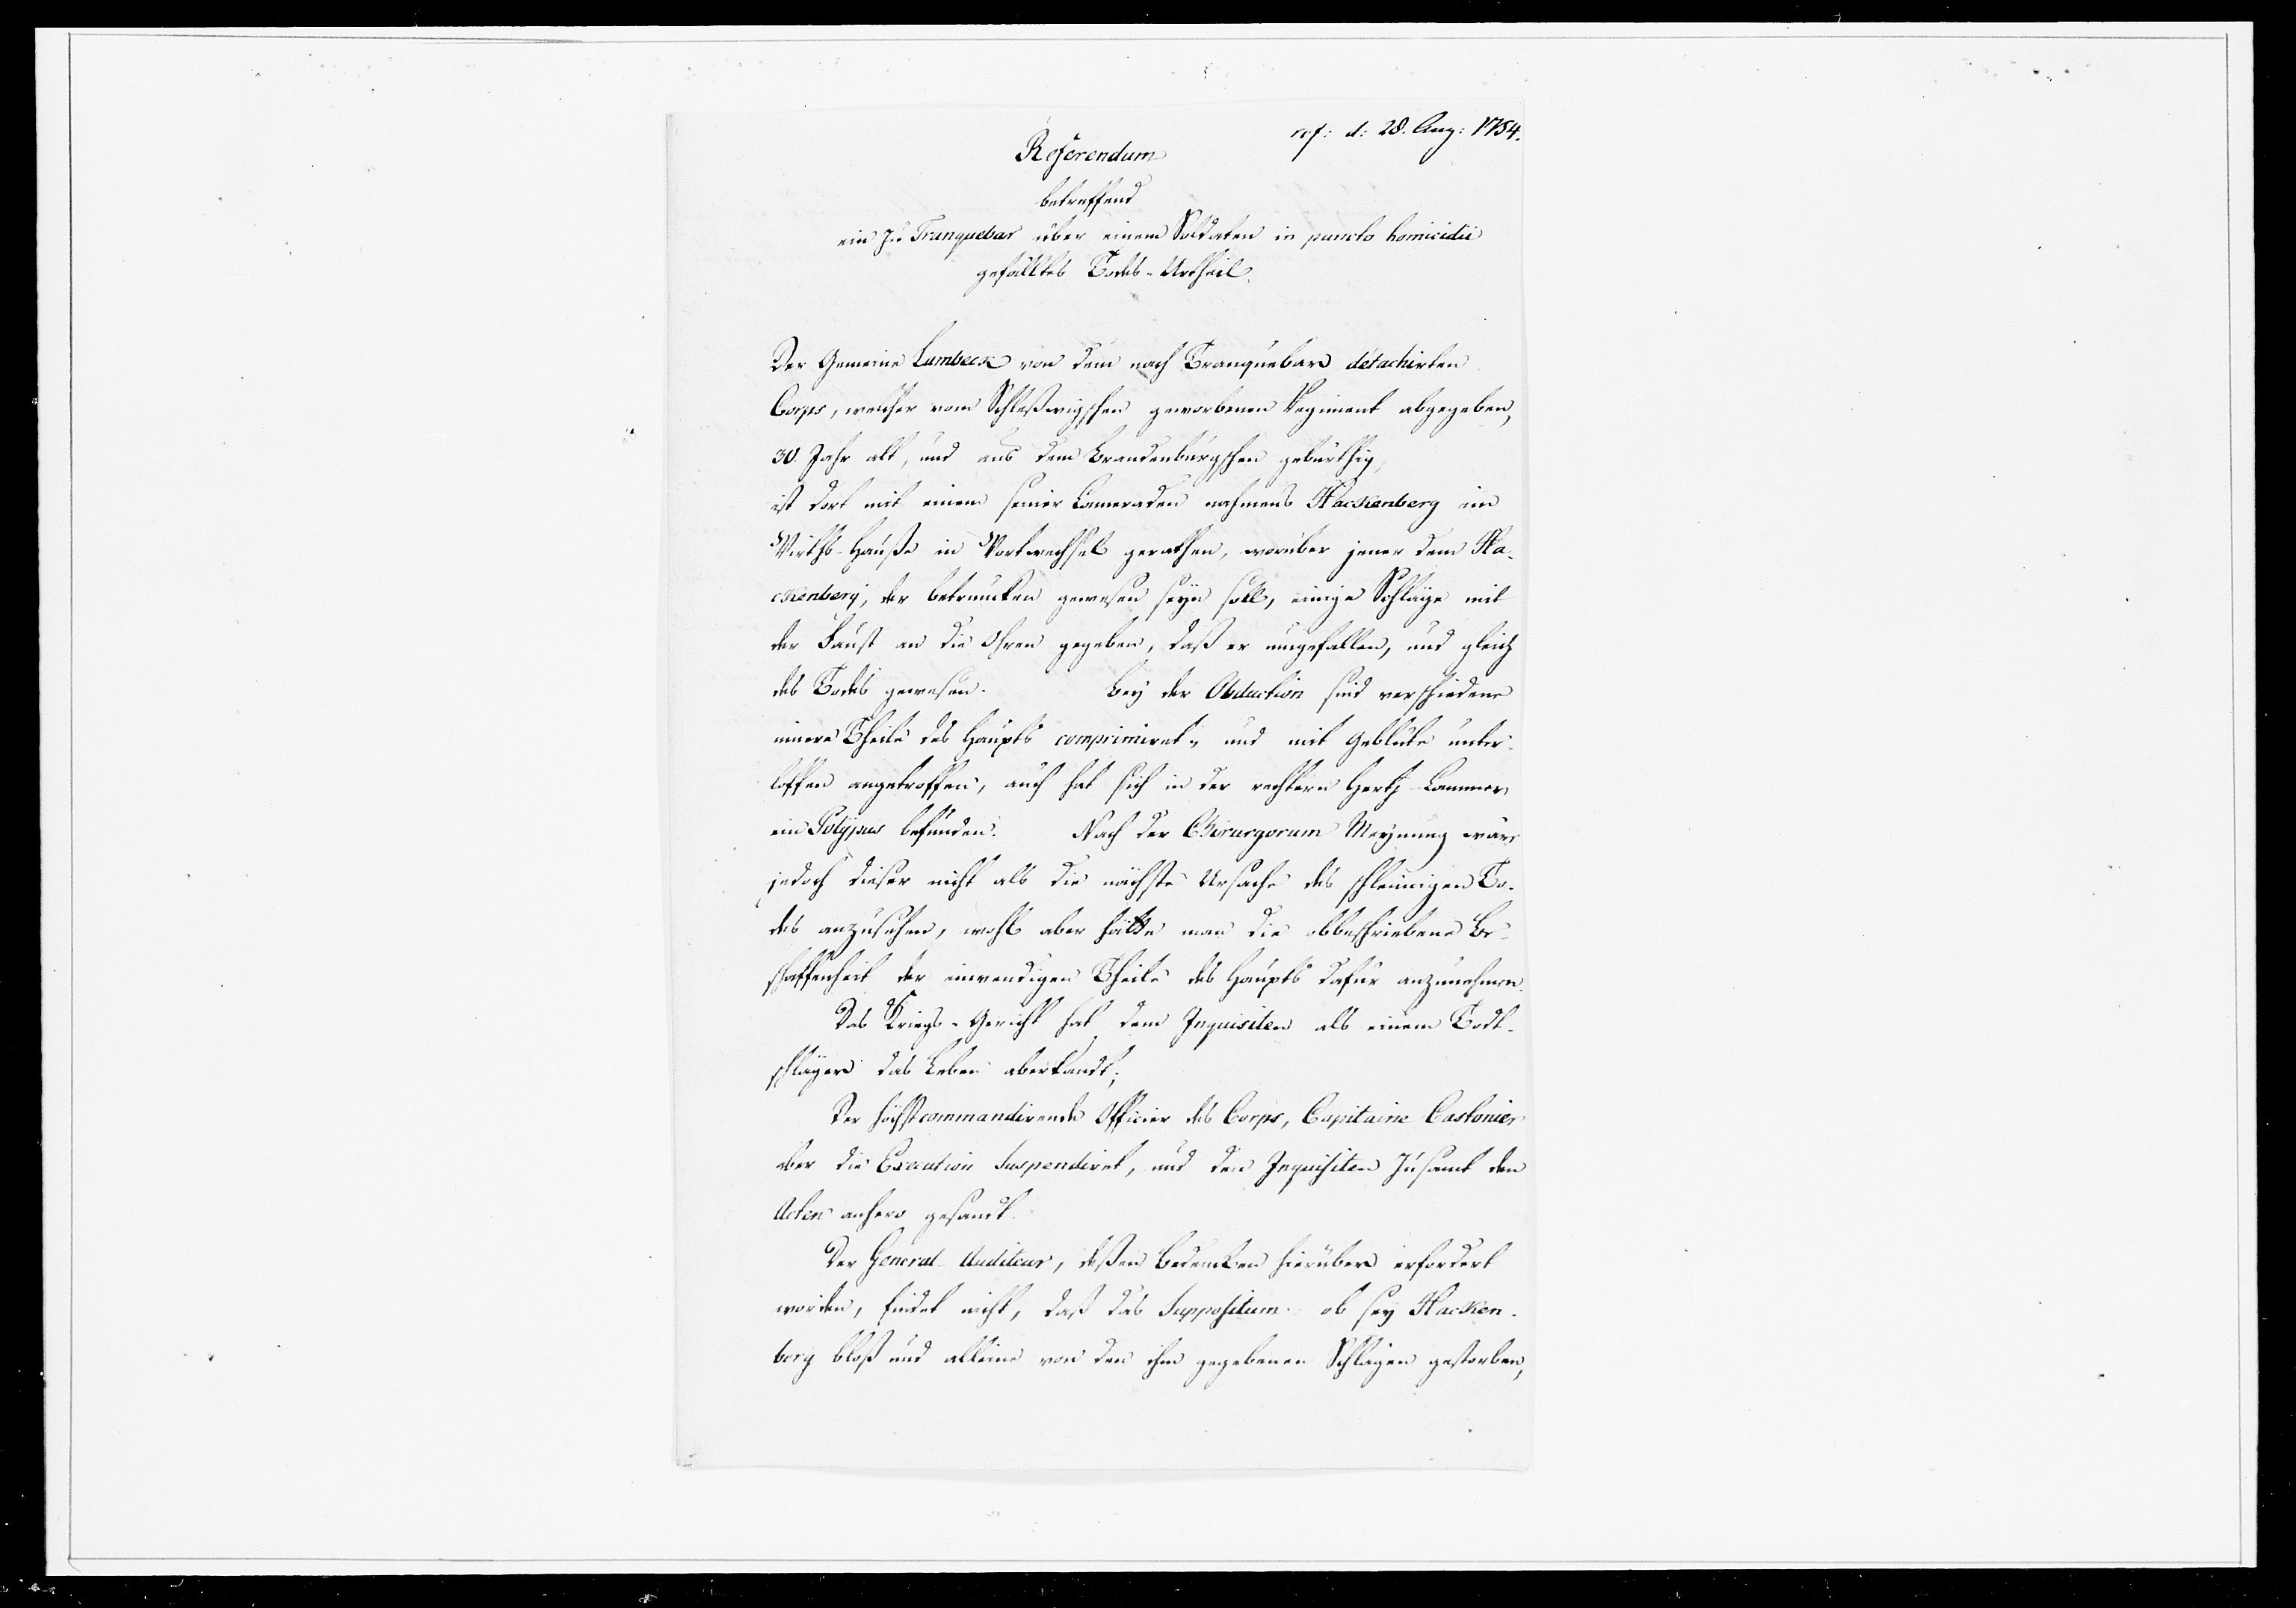 ref: d: 28. Aug: 1754.
Referendum
betreffend
ein zu Tranquebar über einem Soldaten in puncto homicidii
gefälltes Todes-Urtheil.
Der Gemeine Lambeck von dem nach Tranquebar détachirten
Corps, welcher vom Schleßwigschen geworbenen Regiment abgegeben,
30. Jahr alt, und aus dem Brandenburgschen gebürthig,
ist dort mit einem seiner Cameraden nahmens Hackenberg im
Wirths-Hauße in Wortwechsel gerathen, worüber jener dem Ha-
ckenberg, der betruncken gewesen seyn soll, einige Schläge mit
der Faust an die Ohren gegeben, daß er umgefallen, und gleich
des Todes gewesen. Bey der Obduction sind verschiedene
innere Theile des Haupts comprimiret- und mit Geblüte unter-
loffen angetroffen, auch hat sich in der rechten Hertz-Cammer
ein Polypus befunden. Nach der Chirurgorum Meynung wäre
jedoch dieser nicht als die nächste Ursache des schleunigen To-
des anzusehen, wohl aber hätte man die obbeschriebene Be-
schaffenheit der inwendigen Theile des Haupts dafür anzunehmen.
Das Kriegs-Gericht hat dem Inquisiten als einem Todt-
schläger das Leben aberkandt;
Der höchstcommandirende Officier des Corps, Capitaine Castonier
aber die Execution suspendiret, und den Inquisiten zusamt den
Acten anhero gesandt.
Der General-Auditeur, deßen Bedencken hierüber erfordert
worden, findet nicht, daß das Suppositum: ob sey Hacken-
berg bloß und alleine von den ihm gegebenen Schlägen gestorben,